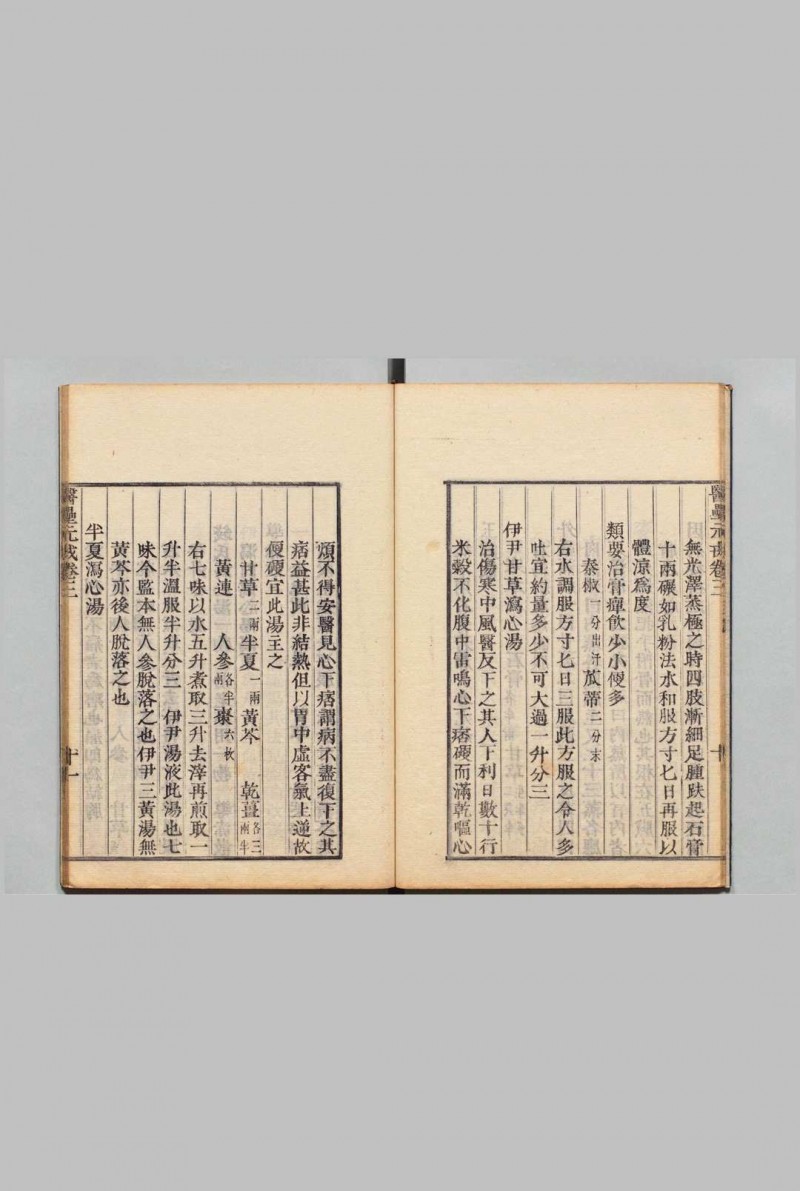 醫壘元戎卷三
無光澤蒸極之時四肢漸細足腫趺起石膏
十兩碾如乳粉法水和服方寸匕日再服以
體涼爲度
類要治膏癉飲少小便多
秦椒一分出汗 苽蒂二分末
右水調服方寸匕日三服此方服之令人多
吐宜約量多少不可大過一升分三
伊尹甘草瀉心湯
治傷寒中風醫反下之其人下利日數十行
米穀不化腹中雷鳴心下痞硬而滿乾嘔心
十
煩不得安醫見心下痞謂病不盡復下之其
痞益甚此非結熱但以胃中虛客氣上逆故
使硬宜此湯主之
甘草二兩 半夏一兩 黃芩 乾薑各三兩半
黃連 人參各半兩 棗六枚
右七味以水五升煮取三升去滓再煎取一
升半溫服半升分三 伊尹湯液此湯也七
味今監本無人參脫落之也伊尹三黃湯無
黃芩亦後人脫落之也
半夏瀉心湯
醫壘元戎卷三
十一